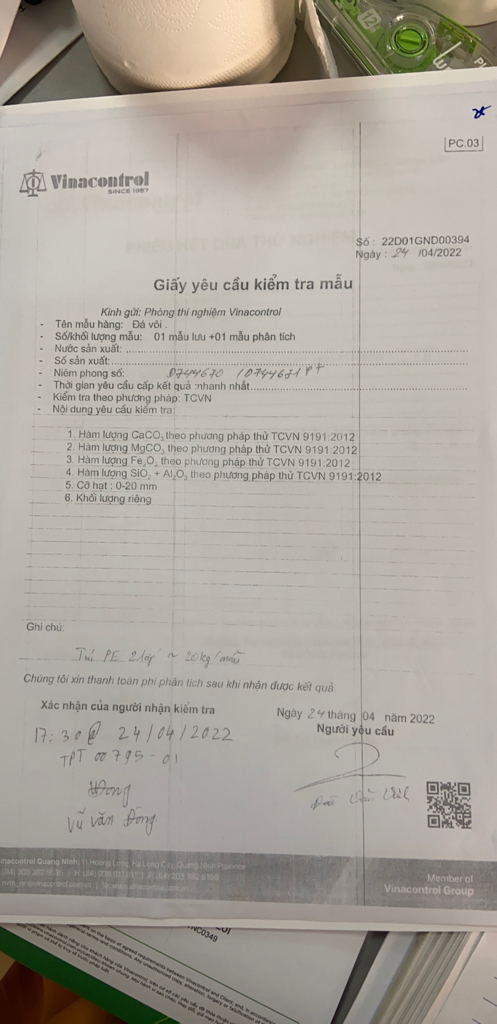 PC.03
Vinacontrol
SINCE 1957
Số : 22D01GND00394
Ngày : 24 /04/2022
Giấy yêu cầu kiểm tra mẫu
Kính gửi: Phòng thí nghiệm Vinacontrol
- Tên mẫu hàng: Đá vôi .
- Số/khối lượng mẫu: 01 mẫu lưu +01 mẫu phân tích
- Nước sản xuất:
- Số sản xuất:
- Niêm phong số: 0744670 /0744681
- Thời gian yêu cầu cấp kết quả :nhanh nhất
- Kiểm tra theo phương pháp: TCVN
- Nội dung yêu cầu kiểm tra:
1. Hàm lượng CaCO₃ theo phương pháp thử TCVN 9191:2012
2. Hàm lượng MgCO₃ theo phương pháp thử TCVN 9191:2012
3. Hàm lượng Fe₂O₃ theo phương pháp thử TCVN 9191:2012
4. Hàm lượng SiO₂ + Al₂O₃ theo phương pháp thử TCVN 9191:2012
5. Cỡ hạt : 0-20 mm
6. Khối lượng riêng
Ghi chú:
Túi PE 2 lớp ~ 20kg/mẫu
Chúng tôi xin thanh toán phí phân tích sau khi nhận được kết quả
Xác nhận của người nhận kiểm tra
Ngày 24 tháng 04 năm 2022
Người yêu cầu
17:30 @ 24/04/2022
TPT 00795-01
Đông
Vũ Văn Đông
Vinacontrol Quang Ninh: 11 Hoang Long, Ha Long City, Quang Ninh Province
Member of
Vinacontrol Group
NC0349